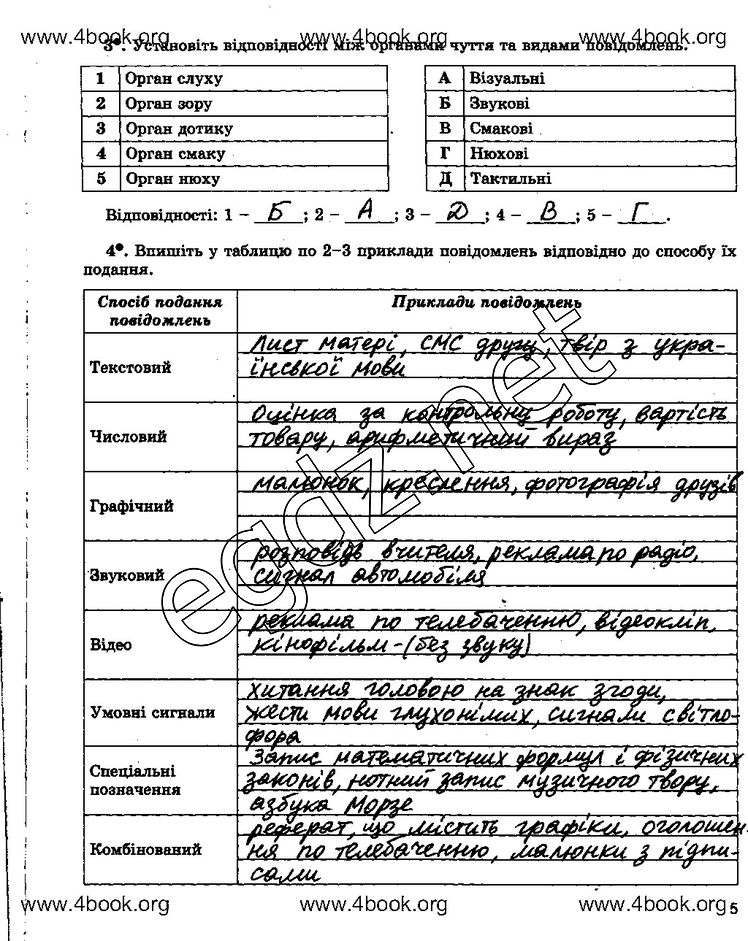 www.4book.org www.4book.org www.4book.org
3•. Установіть відповідності між органами чуття та видами повідомлень.
1 Орган слуху А Візуальні
2 Орган зору Б Звукові
3 Орган дотику В Смакові
4 Орган смаку Г Нюхові
5 Орган нюху Д Тактильні
Відповідності: 1 – Б; 2 – А; 3 – Д; 4 – В; 5 – Г.
4•. Впишіть у таблицю по 2–3 приклади повідомлень відповідно до способу їх
подання.
Спосіб подання
повідомлень
Приклади повідомлень
Текстовий
Лист матері, СМС другу, твір з укра-
їнської мови
Числовий
Оцінка за контрольну роботу, вартість
товару, арифметичний вираз
Графічний
малюнок, креслення, фотографія друзів
Звуковий
розповідь вчителя, реклама по радіо,
сигнал автомобіля
Відео
реклама по телебаченню, відеокліп,
кінофільм-(без звуку)
Умовні сигнали
хитання головою на знак згоди,
жести мови глухонімих, сигнали світло-
фора
Спеціальні
позначення
Запис математичних формул і фізичних
законів, нотний запис музичного твору,
азбука Морзе
Комбінований
реферат, що містить графіки, оголошен-
ня по телебаченню, малюнки з підпи-
сами
egdz.net
www.4book.org www.4book.org www.4book.org 5